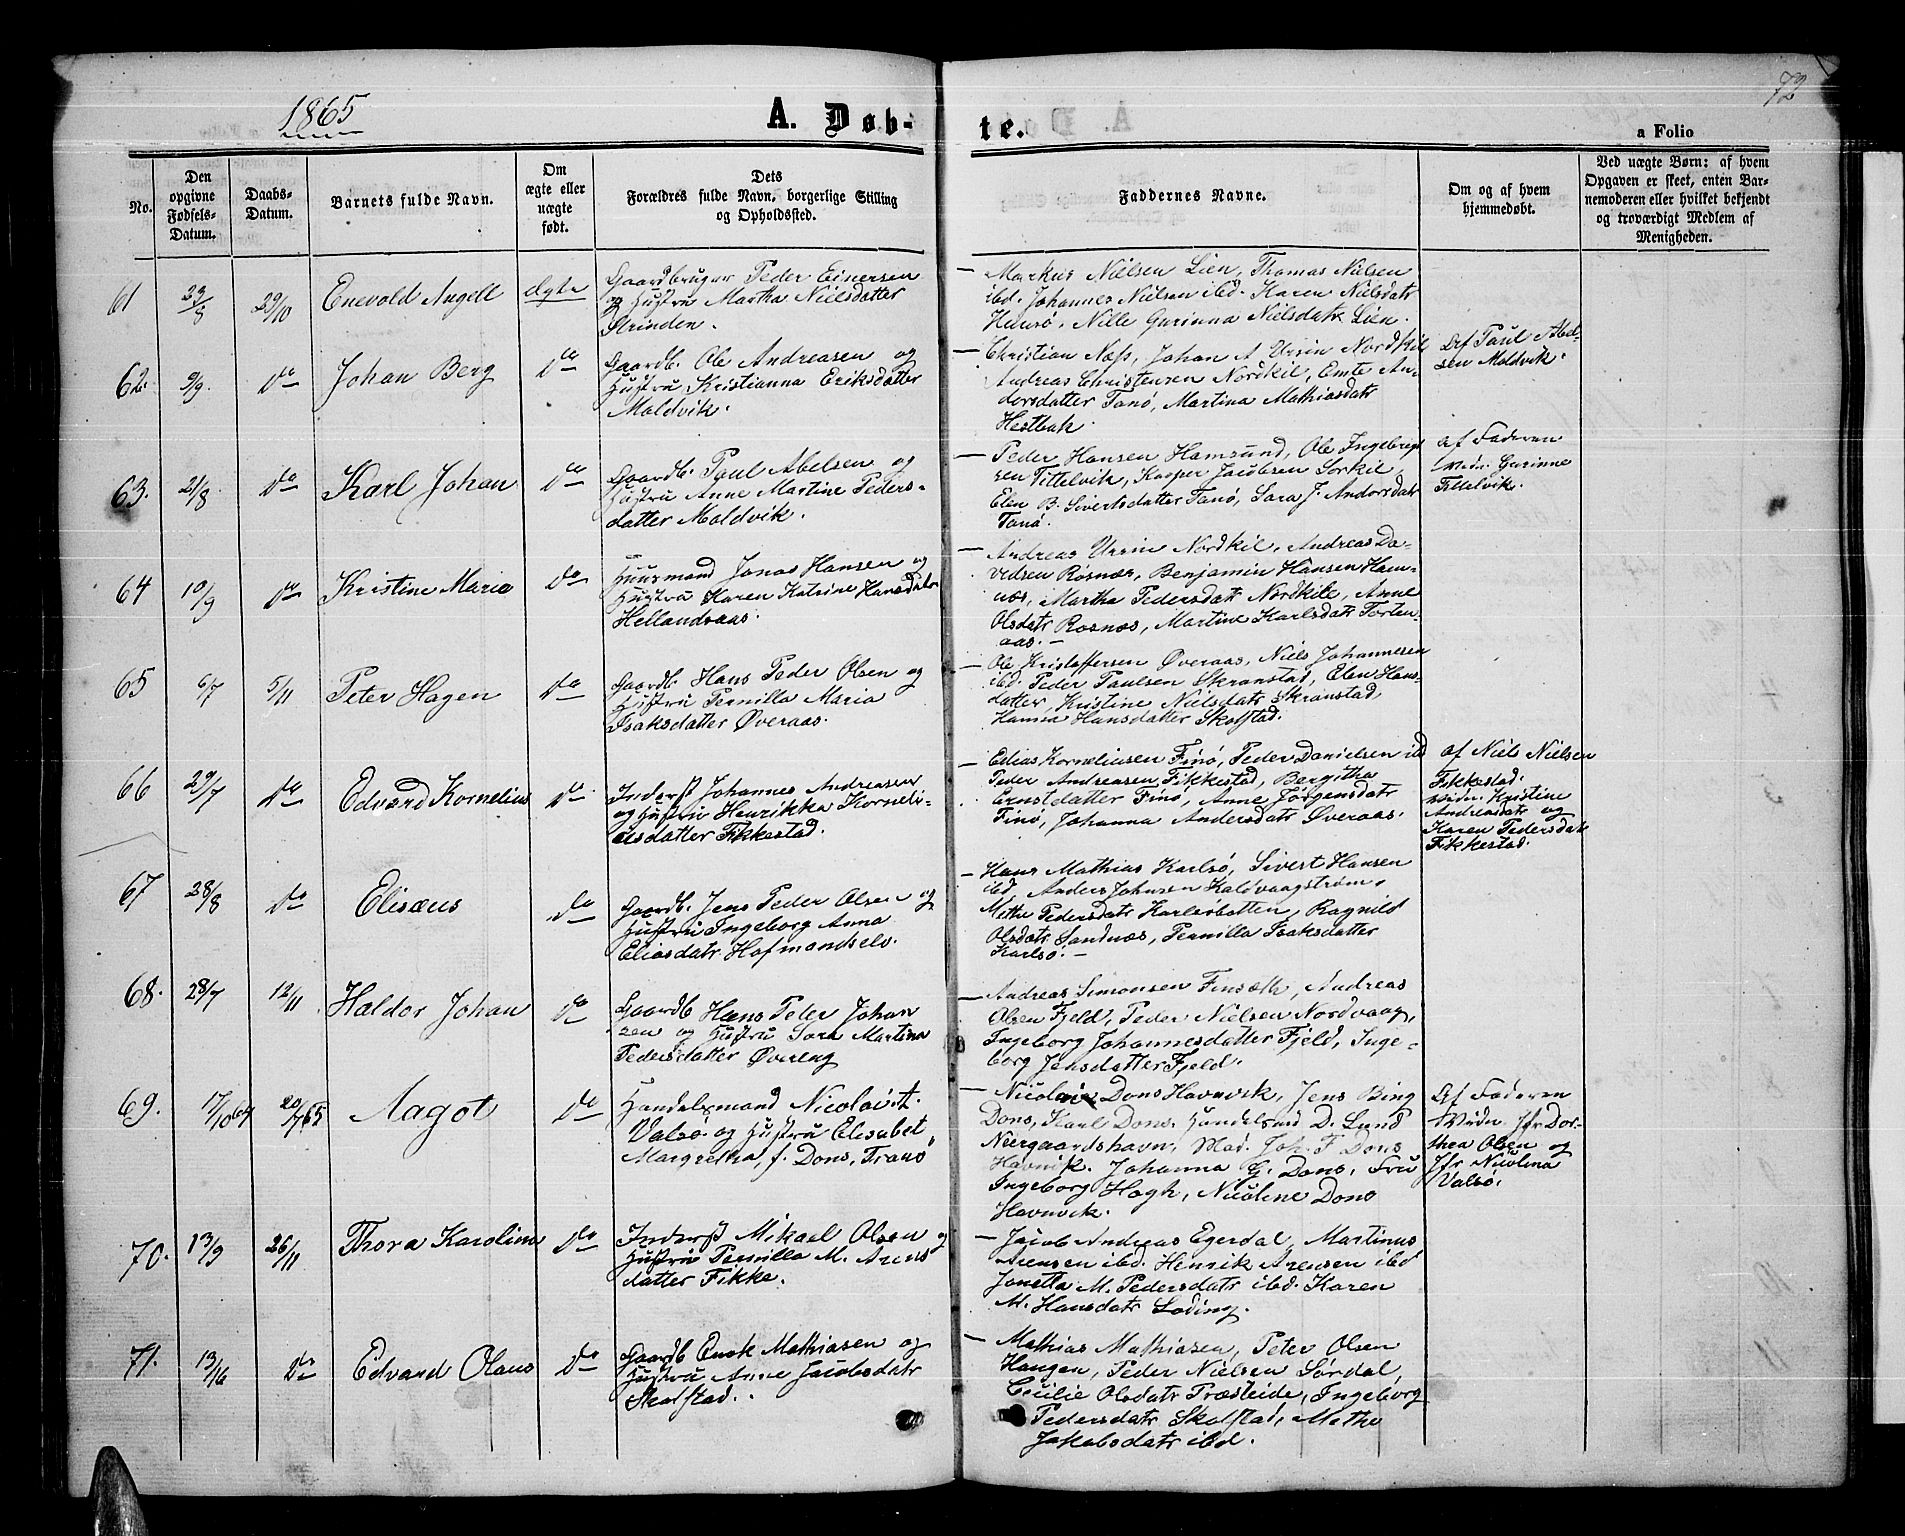 1865
A. Døb-
No.
Den
opgivne
Fødsels-
Datum.
Daabs-
Datum.
Barnets fulde Navn.
Om
ægte eller
uægte
født.
Dets
Forældres fulde Navn, borgerlige Stilling
og Opholdssted.
61
29/8
29/10
Enevold Angell
Ægte
Gaardbruger Peder Einersen
og Hustru Martha Nielsdatter
Strinden.
62.
9/9
do
Johan Berg
do
Gaardb. Ole Andreasen og
Hustru Kristianna Eriksdatter
Moldvik.
63.
21/8
do
Karl Johan
do
Gaardb. Paul Abelsen og
Hustru Anne Martine Peders-
datter Moldvik.
64
10/9
do
Kristine Maria
do
Huusmand Jonas Hansen og
Hustru Karen Katrine Hansdatr
Hellandsaas.
65
6/7
5/11
Peter Hagen
do
Gaardb. Hans Peder Olsen og
Hustru Pernilla Maria
Isaksdatter Øveraas.
66
29/7
do
Edvard Kornelius
do
Inderst Johannes Andreasen
og Hustru Henrikka Korneli-
usdatter Fikkestad.
67
28/8
do
Elisæus
do
Gaardb. Jens Peder Olsen og
Hustru Ingeborg Anna
Eliasdatr Hofmandselv.
68.
28/7
12/11
Haldor Johan
do
Gaardb Hans Peter Johan
sen og Hustru Sara Martina
Pedersdatter Øvereng
69.
17/10 64
20/7 65
Aagot
do
Handelsmand Nicolai A.
Valsø og Hustru Elisabet
Margretha, f. Dons, Tranø
70.
13/9
26/11
Thora Karolina
do
Inderst Mikael Olsen og
Hustru Pernilla M. Arens
datter Fikke.
71.
13/6
do
Edvard Olaus
do
Gaardb Enok Mathiasen og
Hustru Anne Jacobsdatr
Skolstad.
72
te.
a Folio
Faddernes Navne.
Om og af hvem
hjemmedøbt.
Ved uægte Børn: af hvem
Opgaven er skeet, enten Bar-
nemoderen eller hvilket bekjendt
og troværdigt Medlem af
Menigheden.
— Markus Nielsen Lien, Thomas Nielsen
ibd. Johannes Nielsen ibd. Karen Nielsdatr
Hunsø, Nille Gurinna Nielsdatr Lien.
— Christian Næss, Johan A Ursin Nordkil
Andreas Christensen Nordkil, Emte An-
dorsdatter Tanø, Martina Mathiasdatr
Hestbak.
Af Paul Abel-
sen Moldvik.
— Peder Hansen Hamsund, Ole Ingebrigt
sen Tittelvik, Kasper Jacobsen Sorkil
Elen B. Sivertsdatter Tanø, Sara J. Andorsdatr
Tanø.
af Faderen
Vidn. Gurinne
Tittelvik.
— Andreas Ursin Nordkil, Andreas Da-
vidsen Røsnæs, Benjamin Hansen Ham-
næs, Martha Pedersdatr Nordkile, Anne
Olsdatr Rosnæs, Martine Karlsdatr Torten-
aas.—
— Ole Kristoffersen Øveraas, Niels Johannesen
ibd. Peder Paulsen Skranstad, Elen Hans-
datter, Kristine Nielsdatr Skranstad
Hanna Hansdatter Skolstad.
— Edias Korneliusen Finø, Peder Danielsen ibd
Peder Andreasen Fikkestad, Bergitha
Ernstdatter Finø, Anne Jørgensdatr
Finø, Johanna Andersdatr Øveraas.
af Niels Nielsen
Fikkestad.
Vidn. Kristine
Andreasdatr og
Karen Pedersdatr
Fikkestad.
— Hans Mathias Karlsø, Sivert Hansen
ibd, Anders Johnsen Kaldvaagstrøm,
Methe Pedersdatr Karlsøbotten, Ragnild
Olsdatr Sandnæs, Pernilla Isaksdatter
Karlsø.—
— Andreas Simonsen Finsæth, Andreas
Olsen Fjeld, Peder Nielsen Nordvaag,
Ingeborg Johannesdatter Fjeld, Inge-
borg Jensdatter Fjeld.
— Nicolai Dons Havnvik, Jens Bing
Dons, Karl Dons, Handelsmd D. Lund
Nergaardshavn, Mad. Joh. F Dons
Havnvik. Johanna G. Dons, Fru
Ingeborg Hagh, Nicoline Dons
Havnvik.
Af Faderen
Vidn Jfr Dor-
thea Olsen og
Jfr Nicolina
Valsø.
— Jacob Andreas Egerdal, Martinus
Arensen ibd. Henrik Arensen ibd
Jonetta M. Pedersdatr ibd. Karen
M. Hansdatr Løding.
— Mathias Mathiasen, Peter Olsen
Haugen, Peder Nielsen Sørdal,
Cecilie Olsdatr Præsteide, Ingeborg
Pedersdatr Skolstad, Methe
Jakobsdatr ibd.